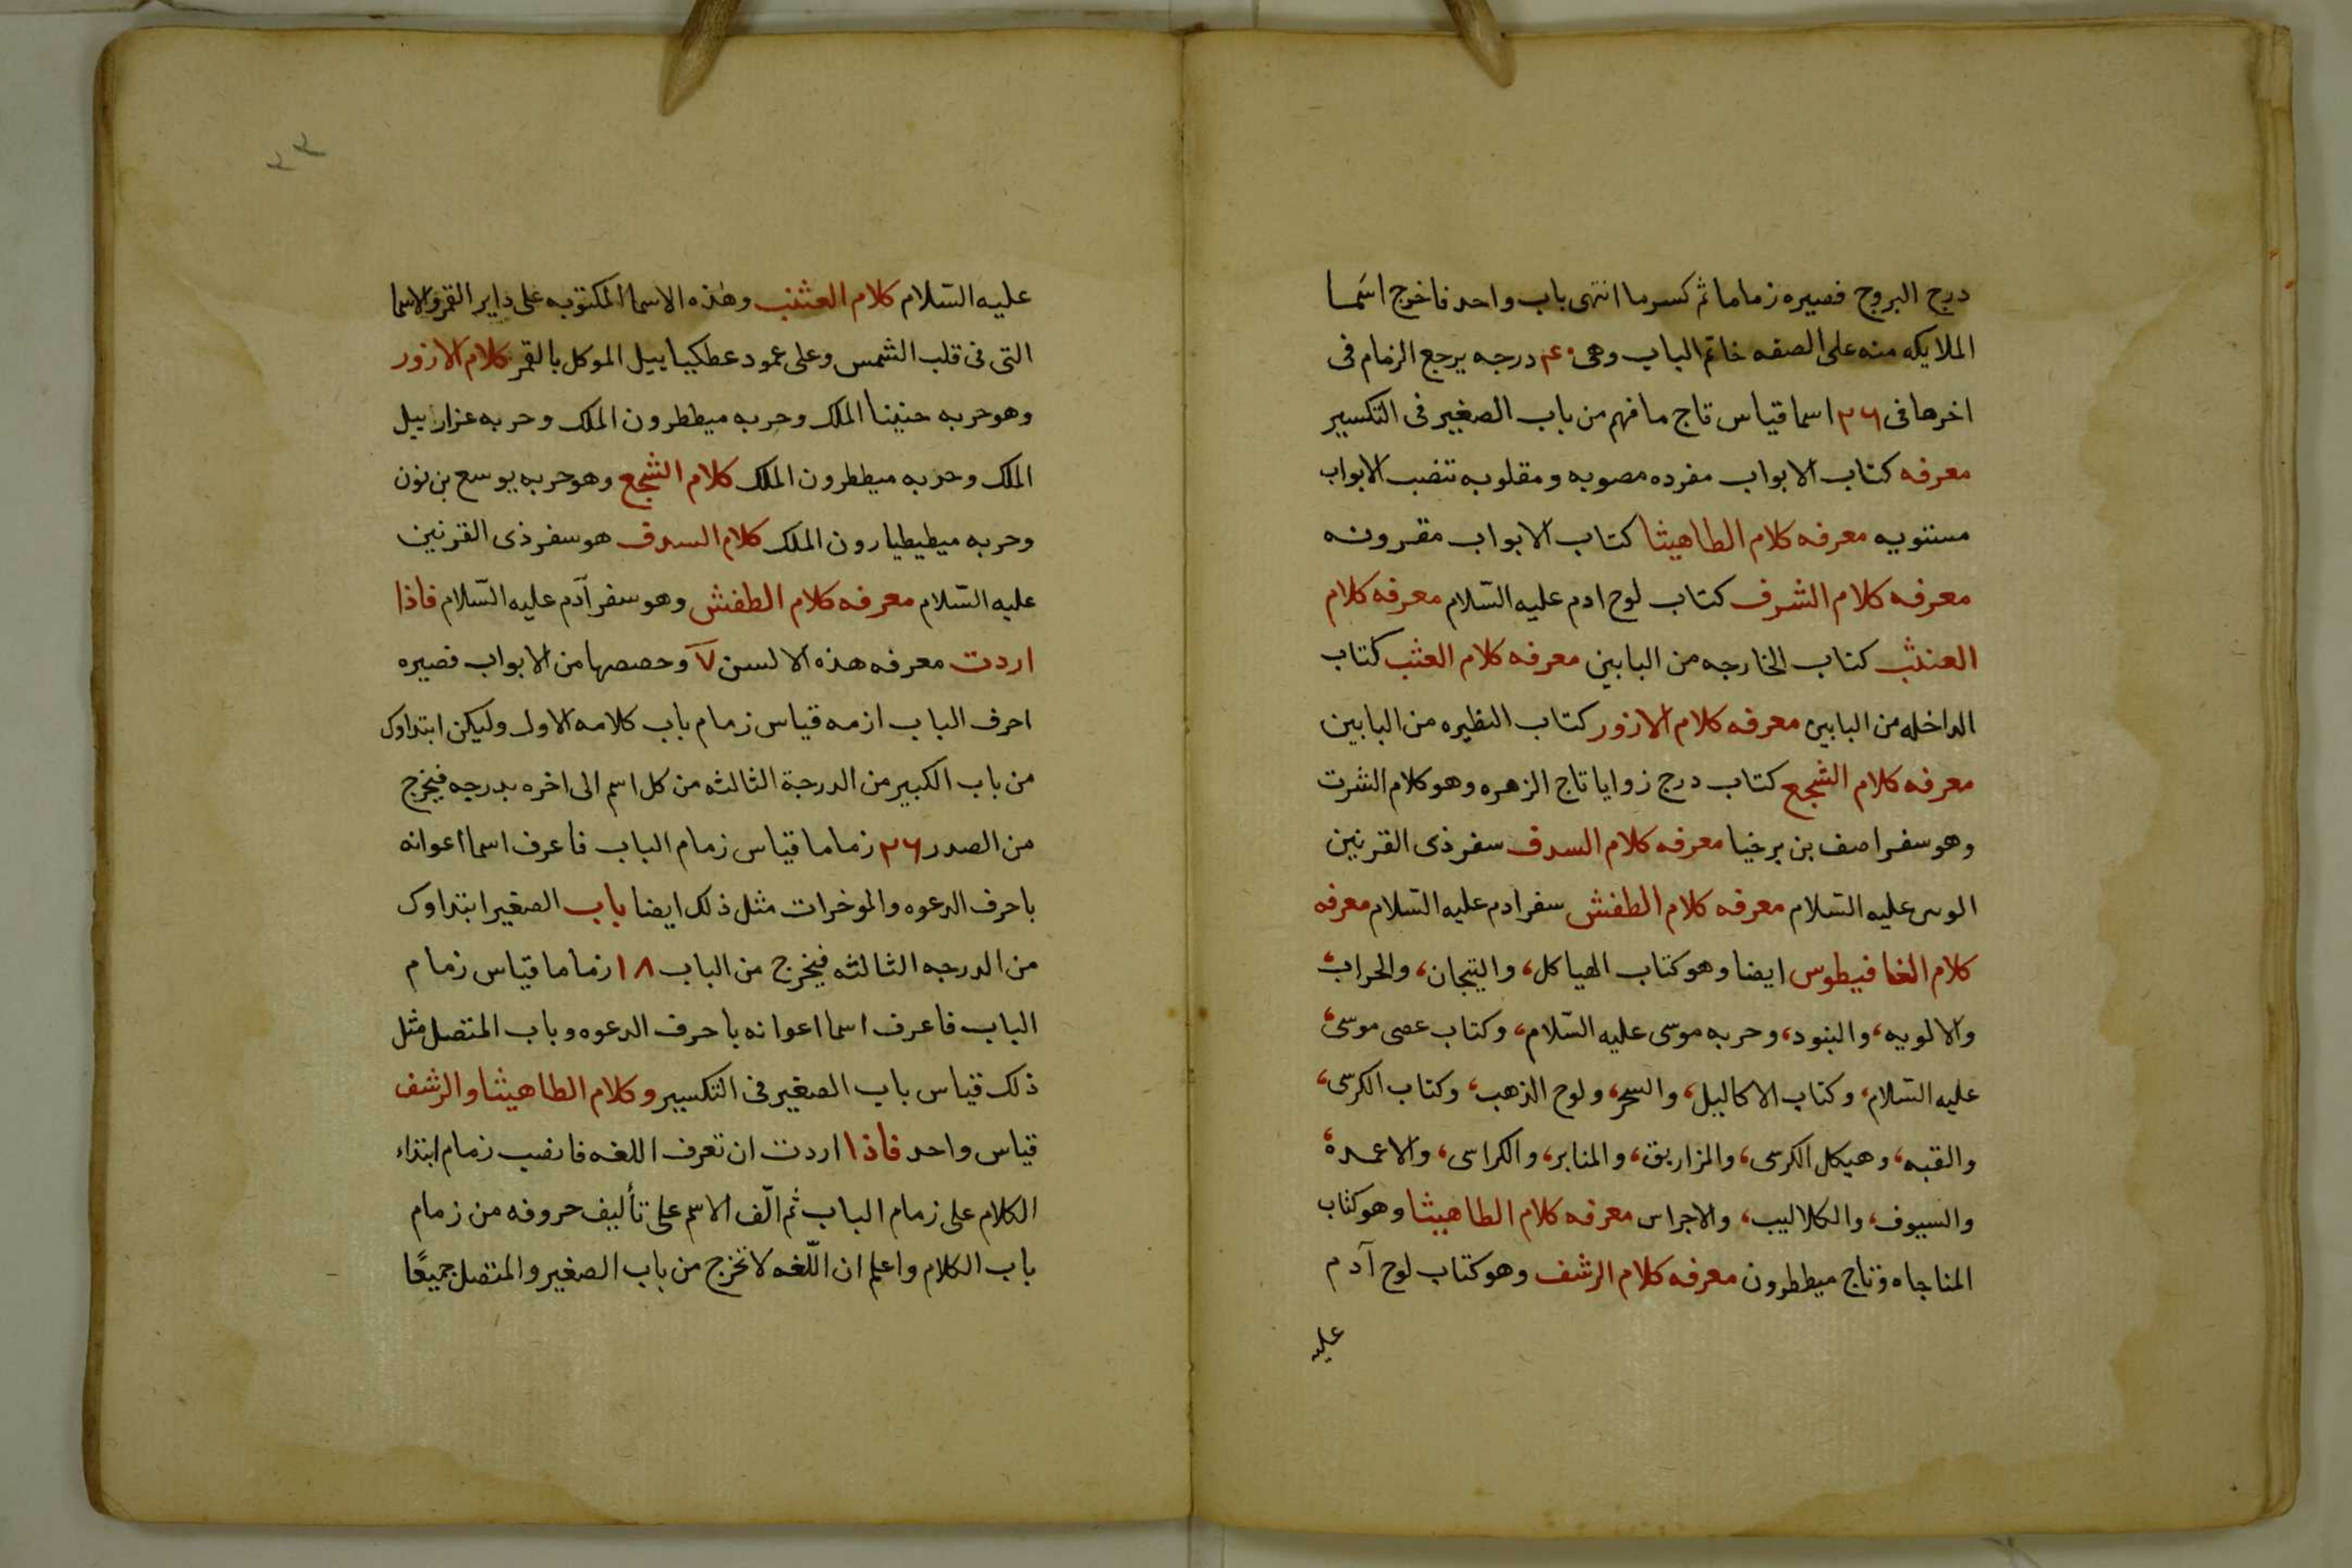 درج البروج فصيره زماما ثم كسرما انتهى باب واحد فاخرج اسما
الملايكه منه على الصفه خاتم الباب وهى درجه يرجع الزمام فى
اخرها فى ٣٦ اسما قياس تاج ما فهم من باب الصغير فى التكسير
معرفه كتاب الابواب مفرده مصوبه ومقلوبه تنضب الابواب
مستويه معرفه كلام الطاهيثا كتاب الابواب مقرونه
معرفه كلام الشرف كتاب لوح ادم عليه السّلام معرفه كلام
العنثب كتاب الخارجه من البابين معرفه كلام العثب كتاب
الداخله من البابين معرفه كلام الازور كتاب النظيره من البابين
معرفه كلام الشجع كتاب درج زوايا تاج الزهره وهو كلام الشرت
وهو سفر اصف بن برخيا معرفه كلام السدف سفر ذى القرنين
عليه السّلام معرفه كلام الطفش سفر ادم عليه السّلام معرفه
كلام الغافيطوس ايضا وهو كتاب الهياكل، والتيجان، والحراب،
والالويه، والبنود، وحربه موسى عليه السّلام، وكتاب عصى موسى،
عليه السّلام، وكتاب الاكاليل، والسحر، ولوح الذهب، وكتاب الكرسى،
والقبه، وهيكل الكرسى، والمزاريق، والمنابر، والكراسى، والاعمده،
والسيوف، والكلاليب، والاجراس معرفه كلام الطاهيثا وهو كتاب
المناجاه وتاج ميططرون معرفه كلام الرشف وهو كتاب لوح آدم
عليه
عليه السّلام كلام العثنب وهذه الاسما المكتوبه على داير القمر والاسما
التى فى قلب الشمس وعلى عمود عطكياييل الموكل بالقمر كلام الازور
وهو حربه حنينا الملك وحربه ميططرون الملك وحربه عزراييل
الملك وحربه ميططرون الملك كلام الشجع وهو حربه يوسع بن نون
وحربه ميطيطيارون الملك كلام السدف هو سفر ذى القرنين
عليه السّلام معرفه كلام الطفش وهو سفر آدم عليه السّلام فاذا
اردت معرفه هذه الالسن ٧ وحصصها من الابواب فصيره
احرف الباب ازمه قياس زمام باب كلامه الاول وليكن ابتداوك
من باب الكبير من الدرجة الثالثه من كل اسم الى اخره بدرجه فيخرج
من الصدر ٣٦ زماما قياس زمام الباب فاعرف اسما اعوانه
باحرف الدعوه والموخرات مثل ذلك ايضا باب الصغير ابتداوك
من الدرجه الثالثه فيخرج من الباب ١٨ زماما قياس زمام
الباب فاعرف اسما اعوانه باحرف الدعوه وباب المتصل مثل
ذلك قياس باب الصغير فى التكسير وكلام الطاهيثا والرشف
قياس واحد فاذا اردت ان تعرف اللغه فانصب زمام ابتداء
الكلام على زمام الباب ثم الّف الاسم على تأليف حروفه من زمام
باب الكلام واعلم ان اللّغه لا تخرج من باب الصغير والمتصل جميعًا